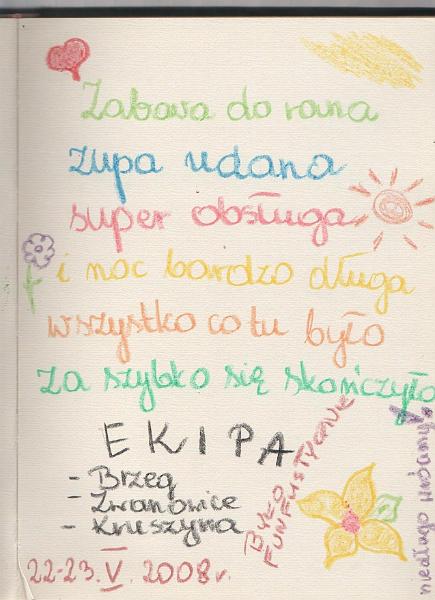 Zabawa do rana
zupa udana
super obsługa
i noc bardzo długa
wszystko co tu było
za szybko się skończyło
EKIPA
- Brzeg
- Zwanowice
- Kruszyna
BYŁO
FUNFUSTYCZNIE
22-23.V.2008r.
niedługo